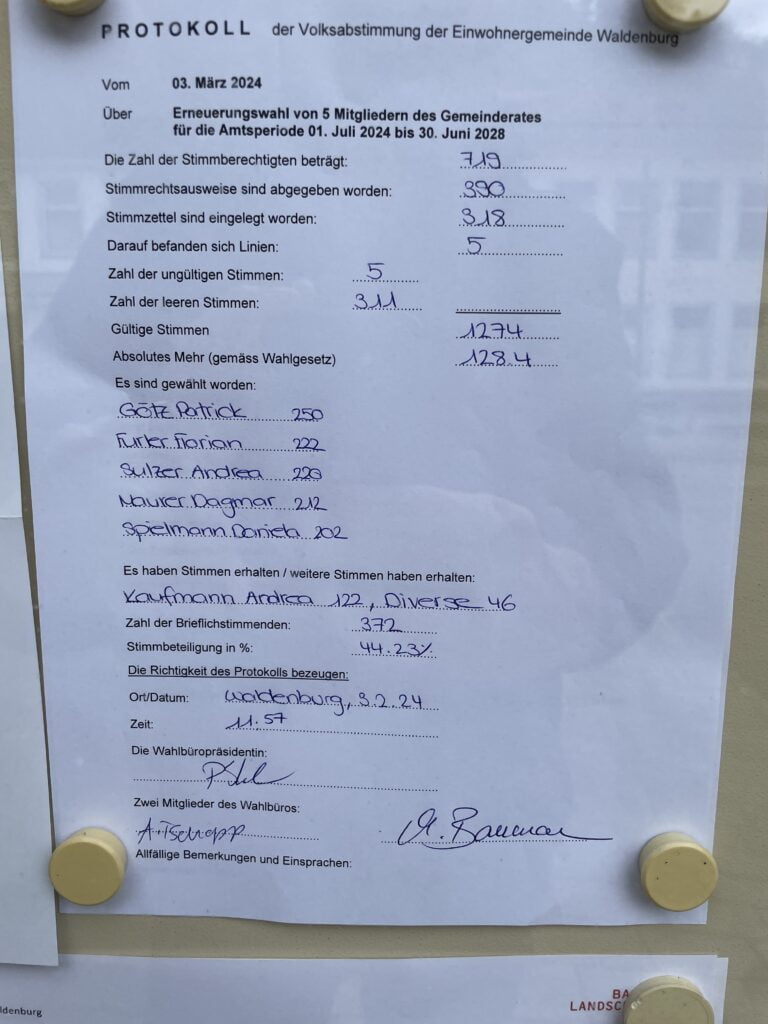 PROTOKOLL der Volksabstimmung der Einwohnergemeinde Waldenburg
Vom 03. März 2024
Über Erneuerungswahl von 5 Mitgliedern des Gemeinderates
für die Amtsperiode 01. Juli 2024 bis 30. Juni 2028
Die Zahl der Stimmberechtigten beträgt: 719
Stimmrechtsausweise sind abgegeben worden: 390
Stimmzettel sind eingelegt worden: 318
Darauf befanden sich Linien: 5
Zahl der ungültigen Stimmen: 5
Zahl der leeren Stimmen: 311
Gültige Stimmen 1274
Absolutes Mehr (gemäss Wahlgesetz) 128.4
Es sind gewählt worden:
Götz Patrick 250
Furler Florian 222
Sulzer Andrea 220
Maurer Dagmar 212
Spielmann Daniela 202
Es haben Stimmen erhalten / weitere Stimmen haben erhalten:
Kaufmann Andrea 122, Diverse 46
Zahl der Brieflichstimmenden: 372
Stimmbeteiligung in %: 44.23%
Die Richtigkeit des Protokolls bezeugen:
Ort/Datum: Waldenburg, 3.2.24
Zeit: 11.57
Die Wahlbüropräsidentin:
Zwei Mitglieder des Wahlbüros:
A. Tschopp
Allfällige Bemerkungen und Einsprachen:
BA
LANDSC
ldenburg